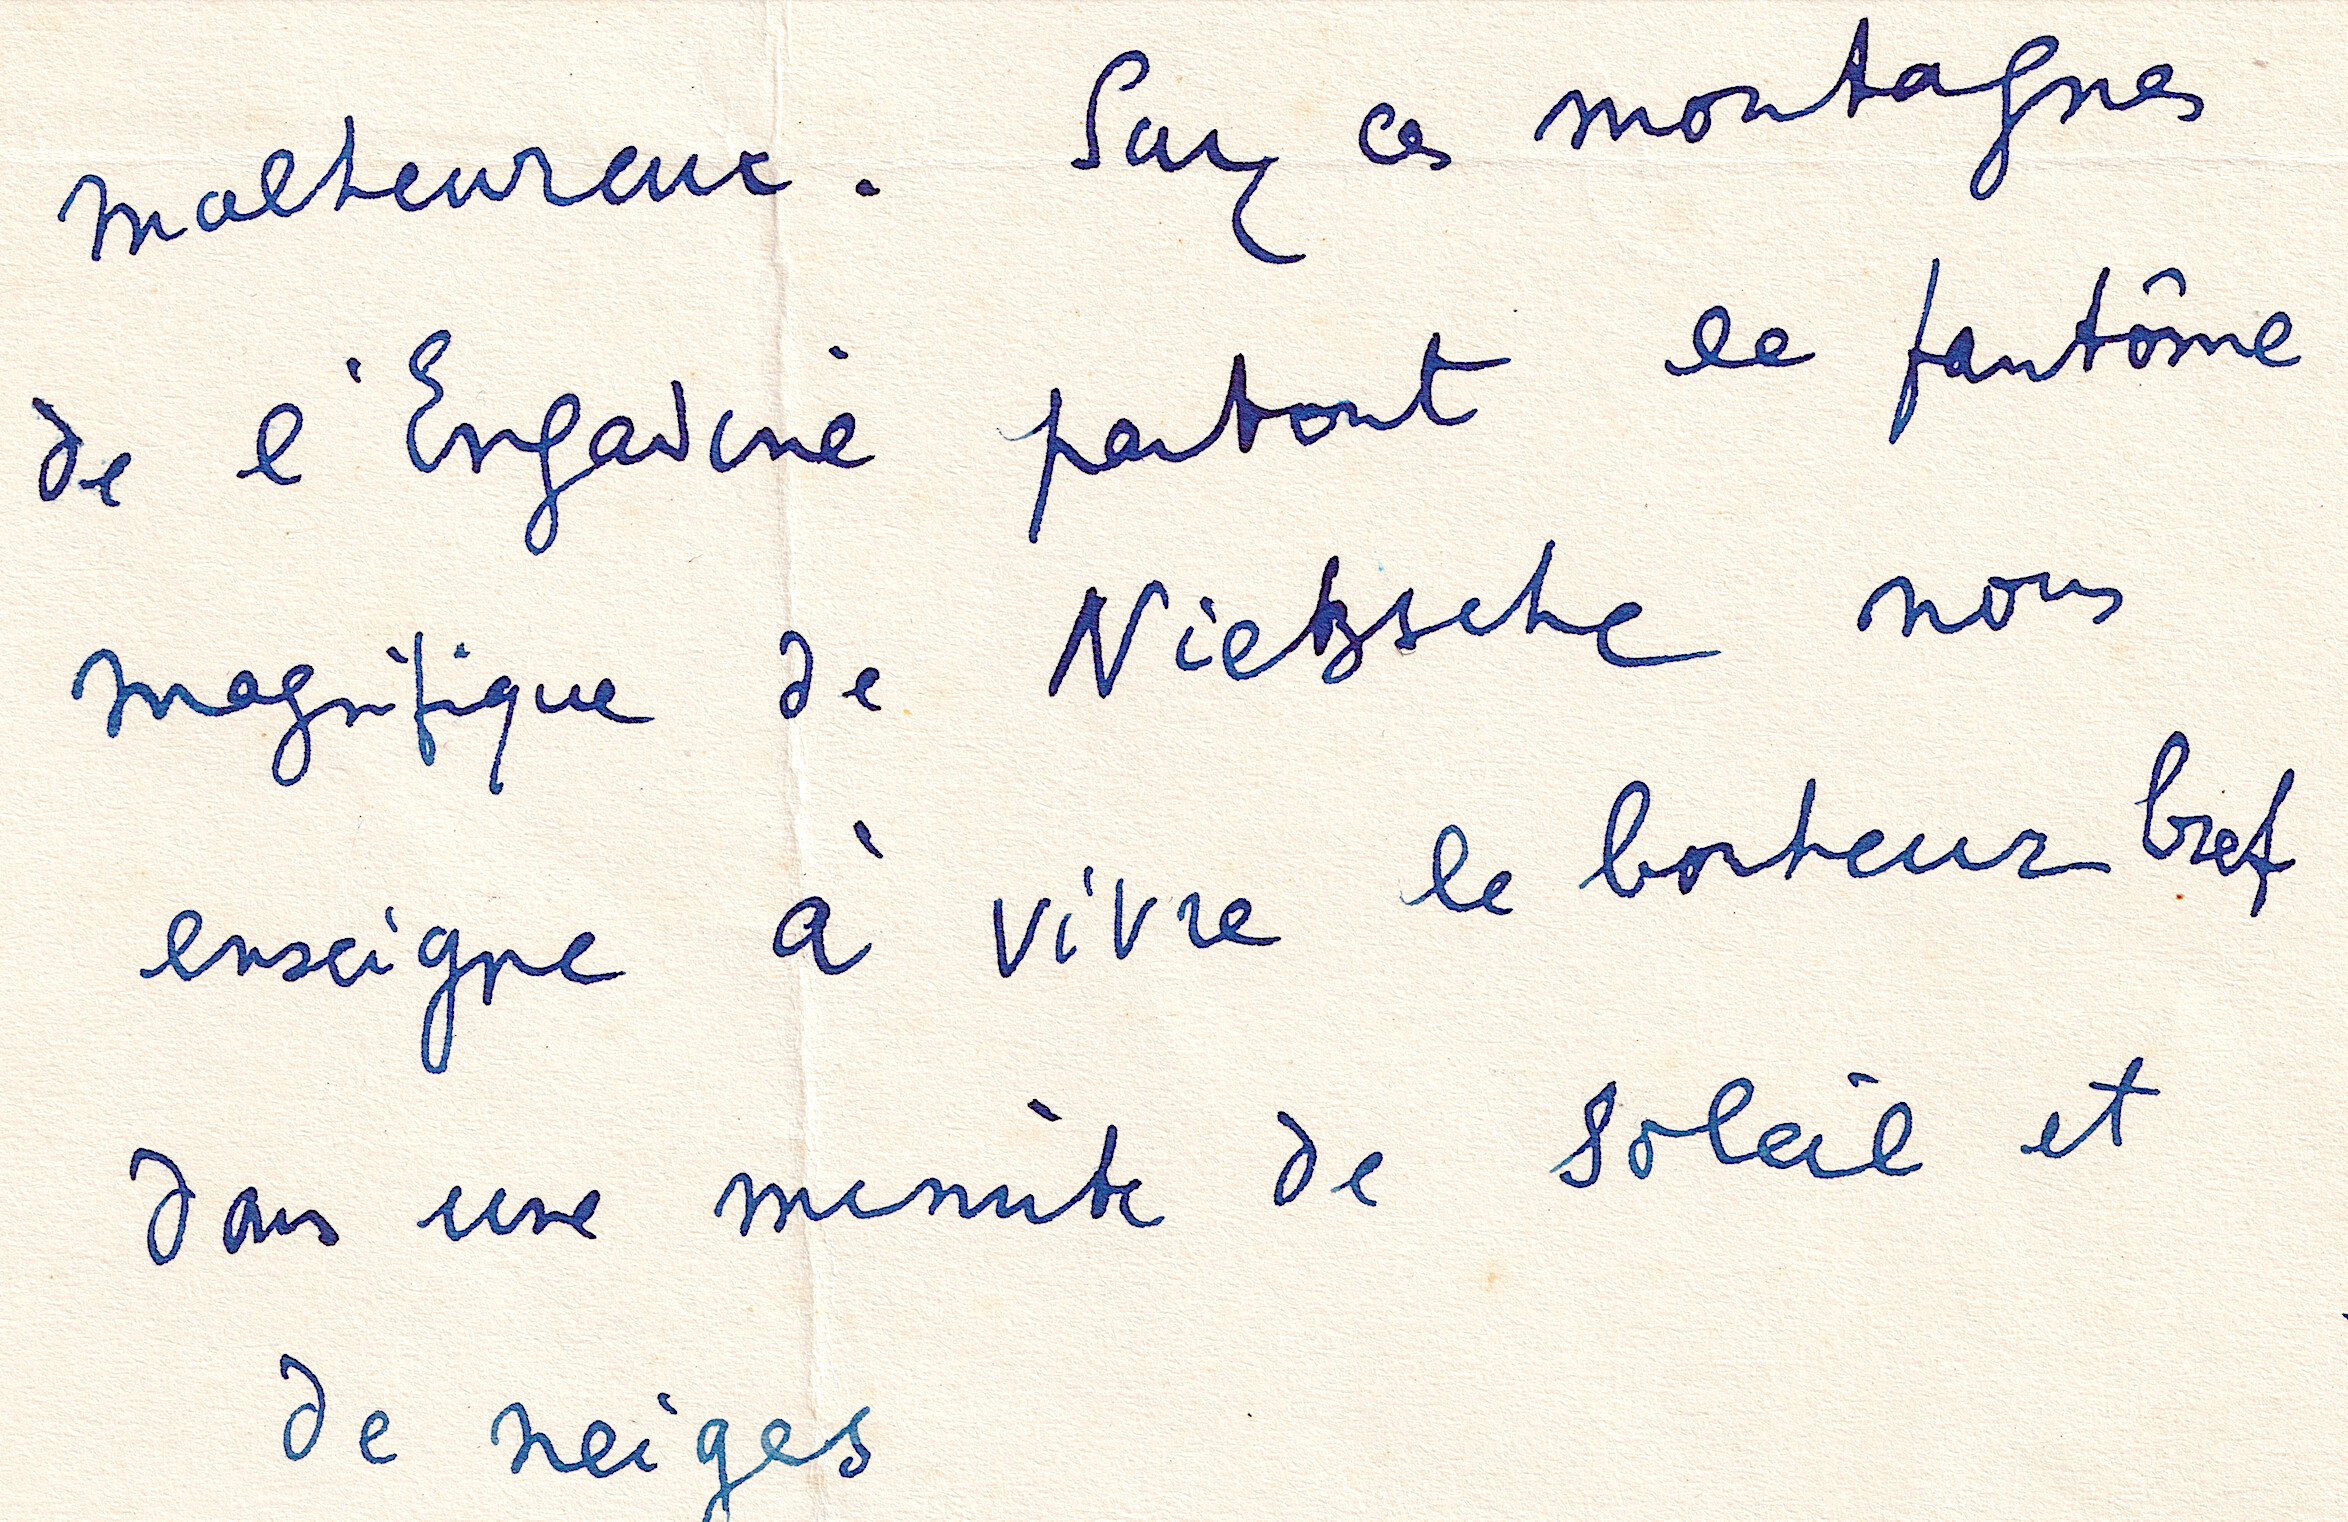 malheureux. Sur ces montagnes
de l'Engadine partout le fantôme
magnifique de Nietzsche nous
enseigne à vivre le bonheur bref
dans une minute de soleil et
de neiges